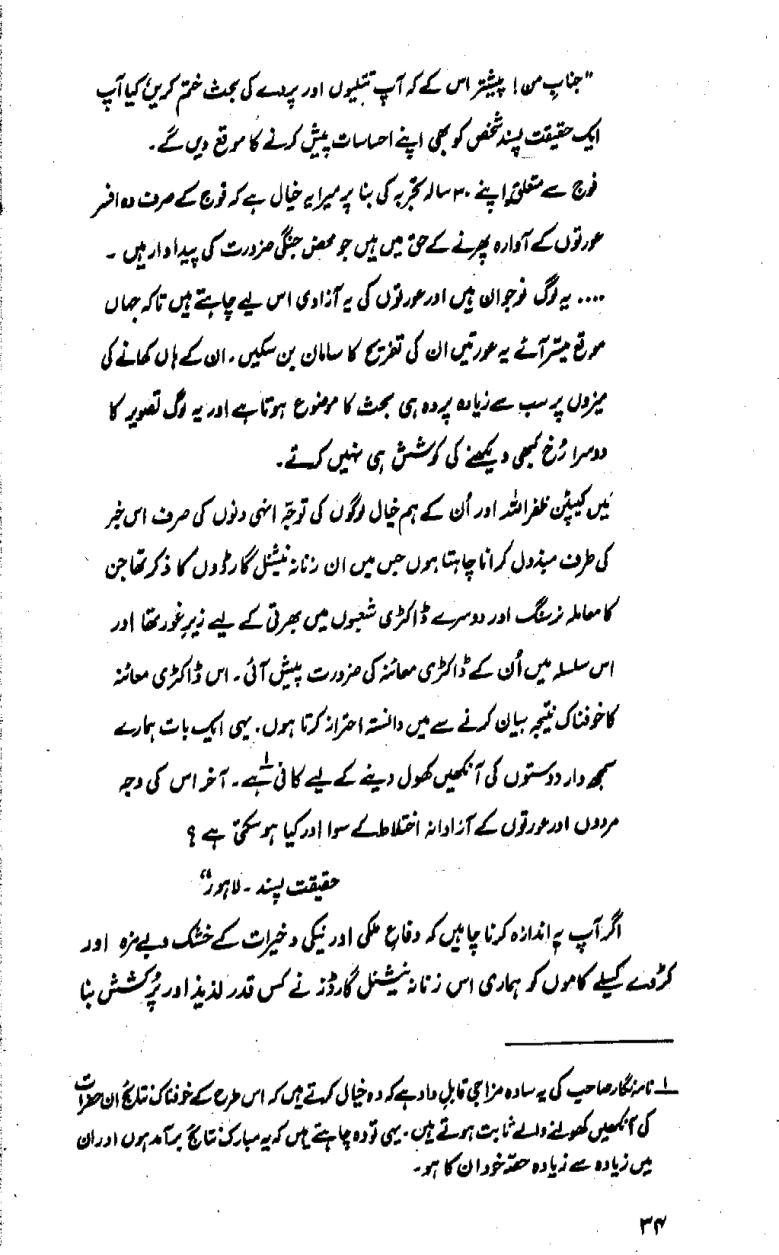 "جنابِ من! پیشتر اس کے کہ آپ تتلیوں اور پردے کی بحث ختم کریں کیا آپ
ایک حقیقت پسند شخص کو بھی اپنے احساسات پیش کرنے کا موقع دیں گے۔
فوج سے متعلق اپنے ۳۰ سالہ تجربہ کی بنا پر میرا یہ خیال ہے کہ فوج کے صرف وہ افسر
عورتوں کے آوارہ پھرنے کے حق میں ہیں جو محض جنگی ضرورت کی پیداوار ہیں ۔
.... یہ لوگ نوجوان ہیں اور عورتوں کی یہ آزادی اس لیے چاہتے ہیں تاکہ جہاں
موقع میسّر آئے یہ عورتیں ان کی تفریح کا سامان بن سکیں۔ ان کے ہاں کھانے کی
میزوں پر سب سے زیادہ پردہ ہی بحث کا موضوع ہوتا ہے اور یہ لوگ تصویر کا
دوسرا رُخ کبھی دیکھنے کی کوشش ہی نہیں کرتے۔
مَیں کیپٹن ظفر اللہ اور اُن کے ہم خیال لوگوں کی توجّہ انہی دنوں کی صرف اس خبر
کی طرف مبذول کرانا چاہتا ہوں جس میں ان زنانہ نیشنل گارڈوں کا ذکر تھا جن
کا معاملہ نرسنگ اور دوسرے ڈاکٹری شعبوں میں بھرتی کے لیے زیرِ غور تھا اور
اس سلسلہ میں اُن کے ڈاکٹری معائنہ کی ضرورت پیش آئی۔ اس ڈاکٹری معائنہ
کا خوفناک نتیجہ بیان کرنے سے میں دانستہ احتراز کرتا ہوں۔ یہی ایک بات ہمارے
سمجھ دار دوستوں کی آنکھیں کھول دینے کے لیے کافی ہے۱۔ آخر اس کی وجہ
مردوں اور عورتوں کے آزادانہ اختلاط کے سوا اور کیا ہو سکتی ہے ؟
حقیقت پسند ۔ لاہور"
اگر آپ یہ اندازہ کرنا چاہیں کہ دفاعِ ملکی اور نیکی و خیرات کے خشک و بے مزہ اور
کڑوے کسیلے کاموں کو ہماری اس زنانہ نیشنل گارڈز نے کس قدر لذیذ اور پُرکشش بنا
۱ نامہ نگار صاحب کی یہ سادہ مزاجی قابلِ داد ہے کہ وہ خیال کرتے ہیں کہ اس طرح کے خوفناک نتائج ان حضرات
کی آنکھیں کھولنے والے ثابت ہوتے ہیں۔ یہی تو وہ چاہتے ہیں کہ یہ مبارک نتائج برآمد ہوں اور ان
میں زیادہ سے زیادہ حصّہ خود ان کا ہو۔
۳۴